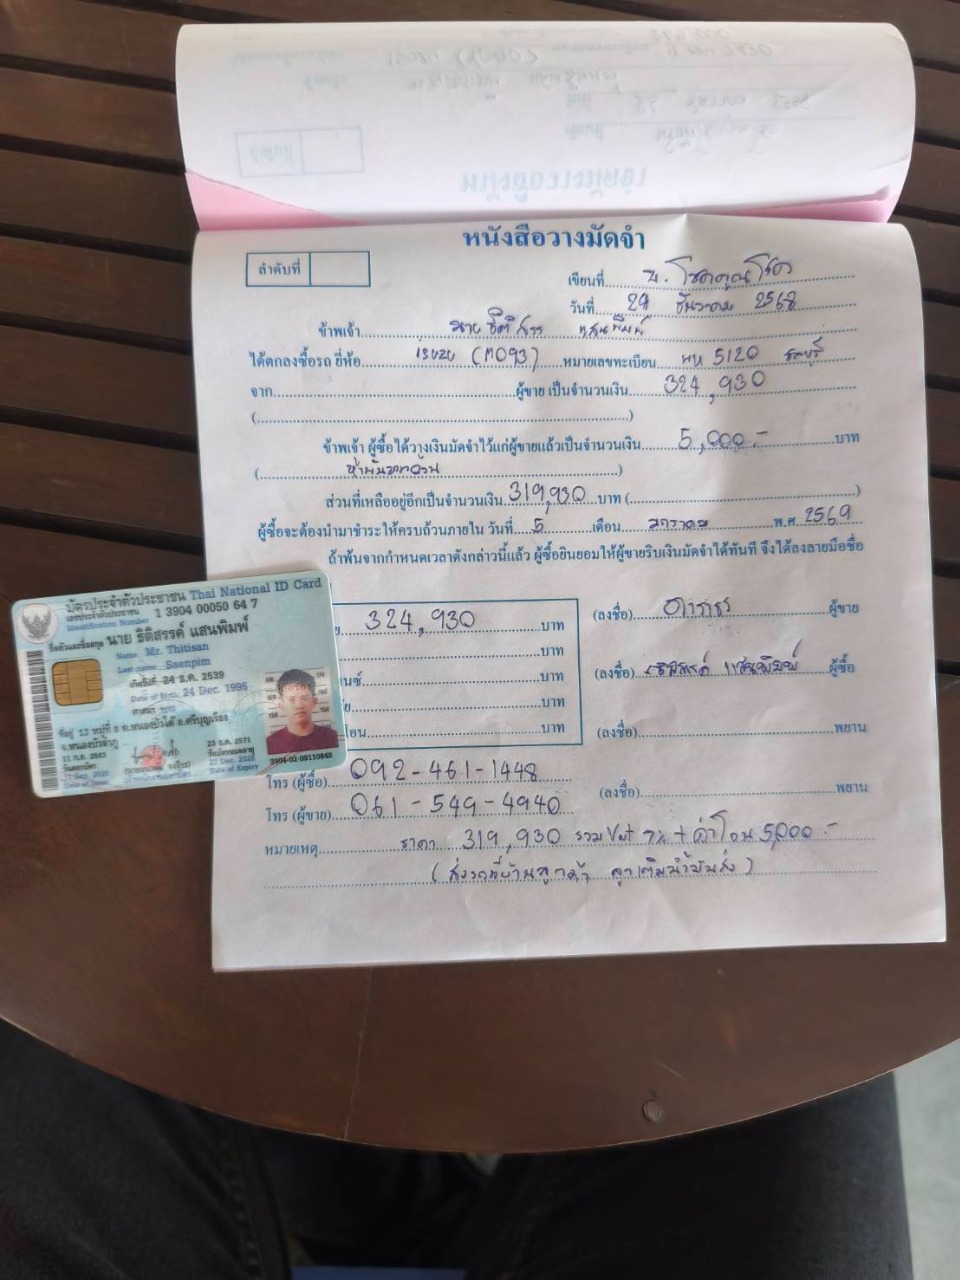 หนังสือวางมัดจำ
ลำดับที่
เขียนที่ บ. โชคคูณโชค
วันที่ 29 ธันวาคม 2568
ข้าพเจ้า นาย ธิติสรร แสนพิมพ์
ได้ตกลงซื้อรถ ยี่ห้อ ISUZU (M093) หมายเลขทะเบียน ผห 5120 ชลบุรี
จาก ผู้ขาย เป็นจำนวนเงิน 324,930
( )
ข้าพเจ้า ผู้ซื้อได้วางเงินมัดจำไว้แก่ผู้ขายแล้วเป็นจำนวนเงิน 5,000.- บาท
( ห้าพันบาทถ้วน )
ส่วนที่เหลืออยู่อีกเป็นจำนวนเงิน 319,930 บาท ( )
ผู้ซื้อจะต้องนำมาชำระให้ครบถ้วนภายใน วันที่ 5 เดือน มกราคม พ.ศ. 2569
ถ้าพ้นจากกำหนดเวลาดังกล่าวนี้แล้ว ผู้ซื้อยินยอมให้ผู้ขายริบเงินมัดจำได้ทันที จึงได้ลงลายมือชื่อ
324,930 บาท
บาท
บาท
บาท
โอน บาท
(ลงชื่อ) ผู้ขาย
(ลงชื่อ) ธิติสรรค์ แสนพิมพ์ ผู้ซื้อ
(ลงชื่อ) พยาน
(ลงชื่อ) พยาน
โทร (ผู้ซื้อ) 092-461-1448
โทร (ผู้ขาย) 061-549-4940
หมายเหตุ ราคา 319,930 รวม Vat 7% + ค่าโอน 5,000.-
( ส่งรถที่บ้านลูกค้า ลูกค้าเติมน้ำมันส่ง )
บัตรประจำตัวประชาชน Thai National ID Card
เลขประจำตัวประชาชน 1 3904 00050 64 7
Identification Number
ชื่อตัวและชื่อสกุล นาย ธิติสรรค์ แสนพิมพ์
Name Mr. Thitisan
Last name Saenpim
เกิดวันที่ 24 ธ.ค. 2539
Date of Birth 24 Dec. 1996
ศาสนา พุทธ
ที่อยู่ 13 หมู่ที่ 8 ต.หนองบัวใต้ อ.ศรีบุญเรือง
จ.หนองบัวลำภู
11 ก.ย. 2563
วันออกบัตร
11 Sep. 2020
Date of Issue
23 ธ.ค. 2571
วันบัตรหมดอายุ
23 Dec. 2028
Date of Expiry
3904-02-09110848